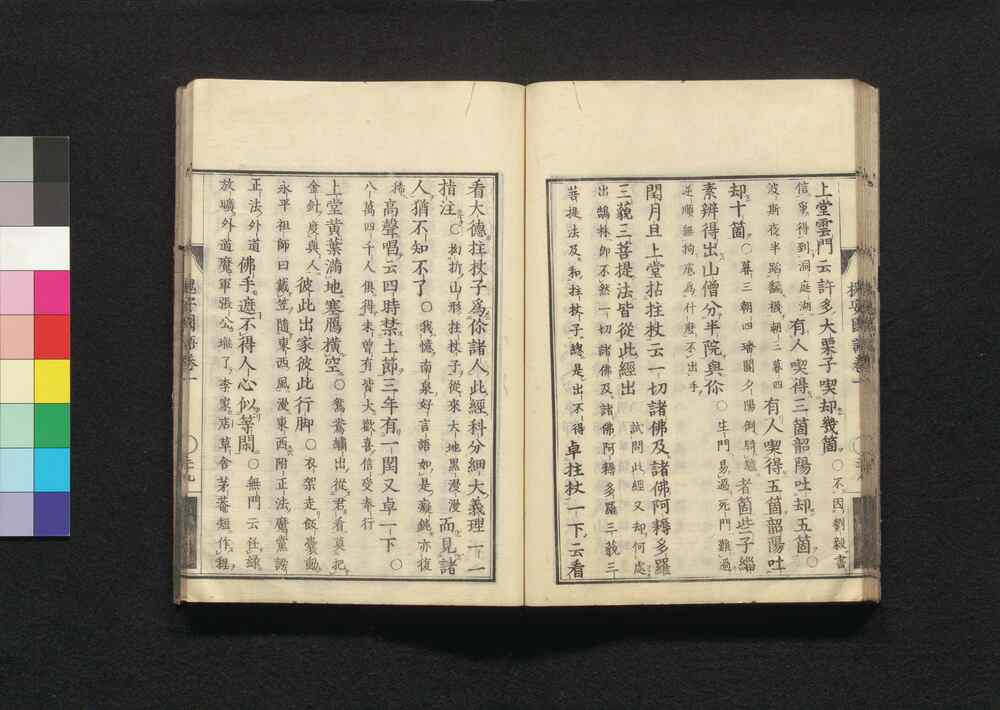 上堂雲門云許多大栗子喫却幾箇○不因劉毅書
信爭得到洞庭湖有人喫得三箇韶陽吐却五箇○
波斯夜半踏飜機朝三暮四有人喫得五箇韶陽吐
却十箇○暮三朝四潘閬夕陽倒騎驢者箇些子緇
素辨得出山僧分半院與你○生門易過死門難過
逆順無拘處爲什麼不出手
閏月旦上堂拈拄杖云一切諸佛及諸佛阿耨多羅
三藐三菩提法皆從此經出試問此經又却何處
出鶴林卽不然一切諸佛及諸佛阿耨多羅三藐三
菩提法及和拄杖子總是出不得卓拄杖一下云看
看大德拄杖子爲你諸人此經科分細大義理一一
㨂注○拗折山形拄杖子從來大地黑漫漫而見諸
人猶不知不了○我憶南泉好言語如是癡鈍亦復
稀高聲唱云四時禁土節三年有一閏又卓一下○
八萬四千人俱得未曾有皆大歡喜信受奉行
上堂黄葉滿地寒鴈橫空○鴛鴦繡出從君看莫把
金針度與人彼此出家彼此行脚○衣架走飯囊動
永平祖師曰戴笠隨東西風漫東西附正法魔黨謗
正法外道佛手遮不得人心似等閑○無門云任緑
放曠外道魔軍張公堠了李家店草舍茅菴短作程